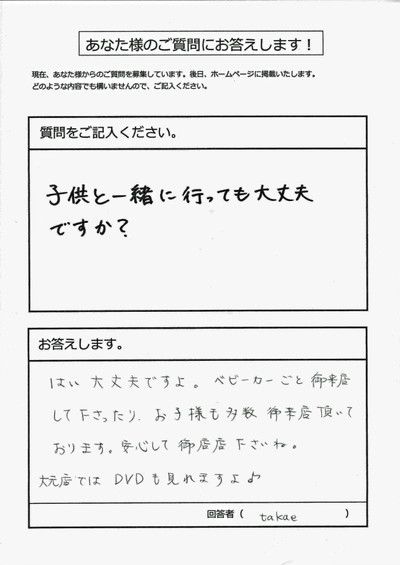 あなた様のご質問にお答えします！
現在、あなた様からのご質問を募集しています。後日、ホームページに掲載いたします。
どのような内容でも構いませんので、ご記入ください。
質問をご記入ください。
子供と一緒に行っても大丈夫
ですか？
お答えします。
はい 大丈夫ですよ。ベビーカーごと御来店
して下さったり、お子様も多数 御来店頂いて
おります。安心して御店店下さいね。
大元店では DVDも見れますよ♪
回答者（ takae ）